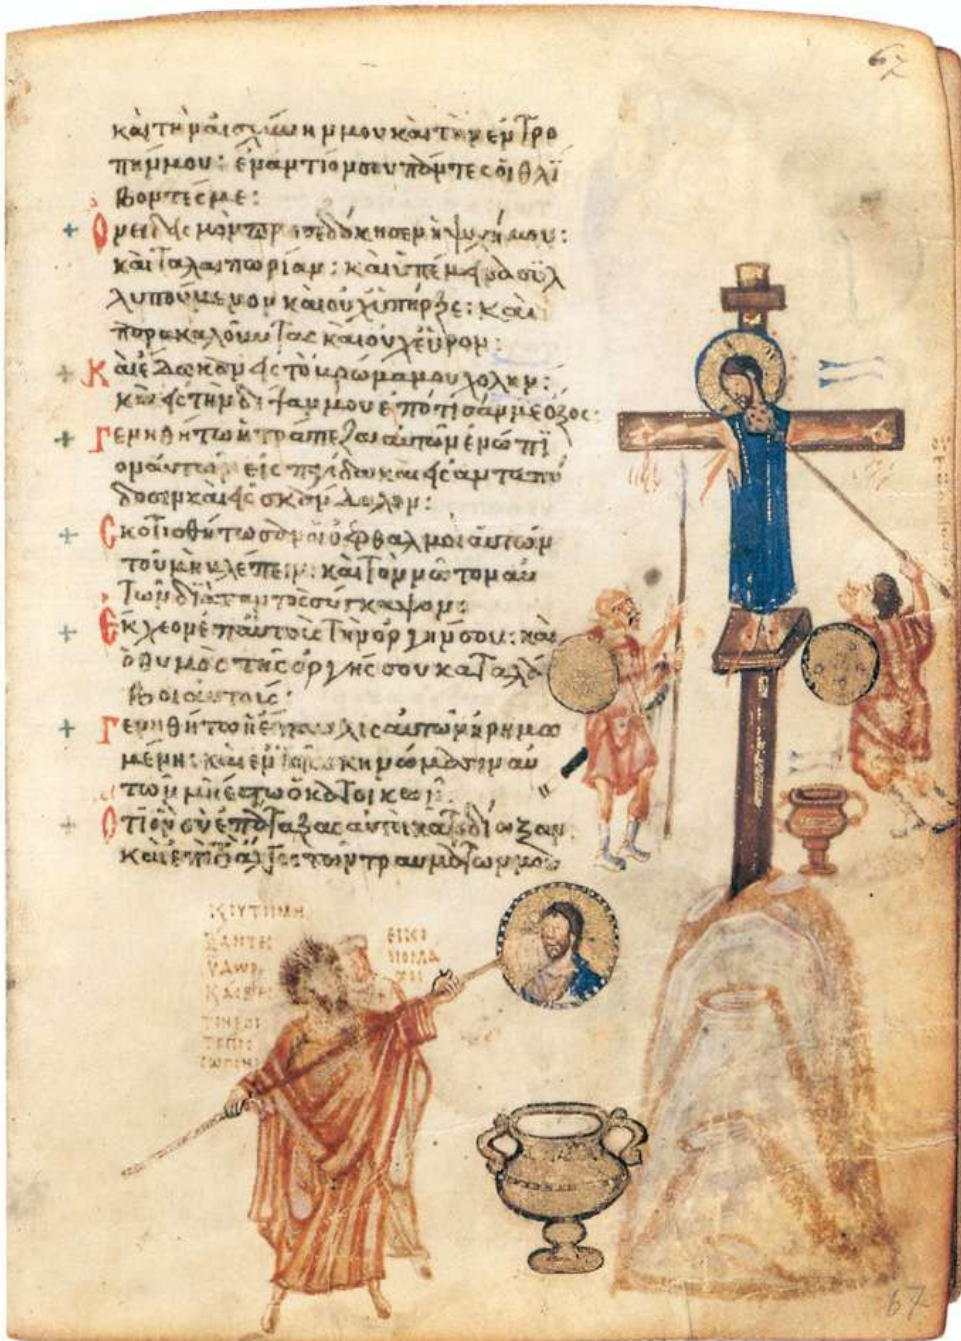 67
καὶ τὴν αἰσχύνην μου καὶ τὴν ἐντρο
πήν μου: ἐναντίον σου πάντες οἱ θλί
βοντές με:
Ὀνειδισμὸν προσεδόκησεν ἡ ψυχή μου:
καὶ ταλαιπωρίαν: καὶ ὑπέμεινα συλ
λυπούμενον καὶ οὐχ ὑπῆρξε: καὶ
παρακαλοῦντας καὶ οὐχ εὗρον:
Καὶ ἔδωκαν εἰς τὸ βρῶμά μου χολήν:
καὶ εἰς τὴν δίψαν μου ἐπότισάν με ὄξος:
Γενηθήτω ἡ τράπεζα αὐτῶν ἐνώπι
ον αὐτῶν εἰς παγίδα καὶ εἰς ἀνταπό
δοσιν καὶ εἰς σκάνδαλον:
Σκοτισθήτωσαν οἱ ὀφθαλμοὶ αὐτῶν
τοῦ μὴ βλέπειν: καὶ τὸν νῶτον αὐ
τῶν διὰ παντὸς σύγκαμψον:
Ἔκχεον ἐπ αὐτοὺς τὴν ὀργήν σου: καὶ
ὁ θυμὸς τῆς ὀργῆς σου καταλά
βοι αὐτούς:
Γενηθήτω ἡ ἔπαυλις αὐτῶν ἠρημω
μένη: καὶ ἐν τοῖς σκηνώμασιν αὐ
τῶν μὴ ἔστω ὁ κατοικῶν:
Ὅτι ὃν σὺ ἐπάταξας αὐτοὶ κατεδίωξαν:
καὶ ἐπὶ τὸ ἄλγος τῶν τραυμάτων μου
ΞΑΝΤΕΣ
ΥΔΩΡ
ΕΙΚΟ
ΝΟΜΑ
ΧΟΙ
67